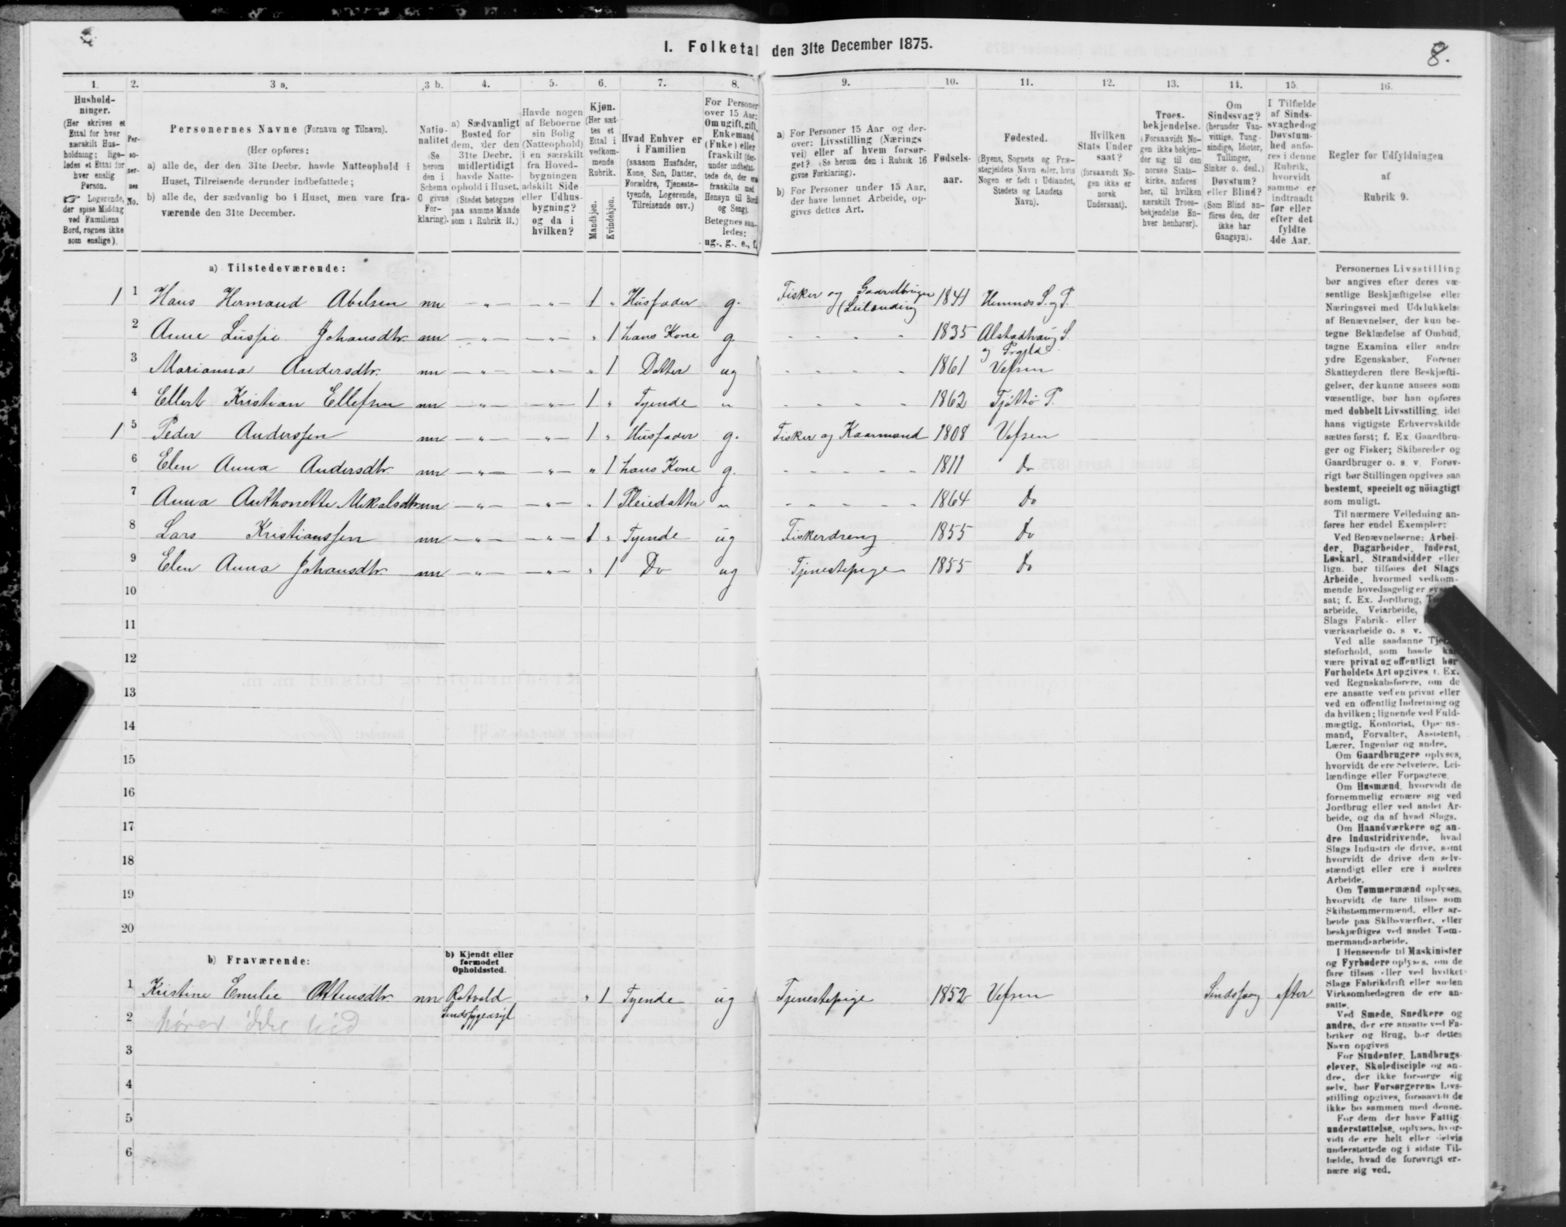 8.
I. Folketal den 31te December 1875.
1. 2. 3 a. 3 b. 4. 5. 6. 7. 8. 9. 10. 11. 12. 13. 14. 15. 16.
Hushold-
ninger.
(Her skrives et
Ettal for hver
særskilt Hus-
holdning; lige-
ledes et Ettal for
hver enslig
Person.
☞ Logerende,
der spise Middag
ved Familiens
Bord, regnes ikke
som enslige).
Per-
so-
ner-
nes
No.
Personernes Navne (Fornavn og Tilnavn).
(Her opføres:
a) alle de, der den 31te Decbr. havde Natteophold i
Huset, Tilreisende derunder indbefattede;
b) alle de, der sædvanlig bo i Huset, men vare fra-
værende den 31te December.
Natio-
nalitet
(Se
herom
den i
Schema
O givne
For-
klaring).
a) Sædvanligt
Bosted for
dem, der den
31te Decbr.
midlertidigt
havde Natte-
ophold i Huset.
(Stedet betegnes
paa samme Maade
som i Rubrik 11.)
Havde nogen
af Beboerne
sin Bolig
(Natteophold)
i en særskilt
fra Hoved-
bygningen
adskilt Side
eller Udhus-
bygning?
og da i
hvilken?
Kjøn.
(Her sæt-
tes et
Ettal i
vedkom-
mende
Rubrik.
Mandkjøn.
Kvindekjøn.
Hvad Enhver er
i Familien
(saasom Husfader,
Kone, Søn, Datter,
Forældre, Tjeneste-
tyende, Logerende,
Tilreisende osv.)
For Personer
over 15 Aar:
Om ugift, gift,
Enkemand
(Enke) eller
fraskilt (der-
under indbefat-
tede de, der ere
fraskilte med
Hensyn til Bord
og Seng).
Betegnes saa-
ledes:
ug., g., e., f.
a) For Personer 15 Aar og der-
over: Livsstilling (Nærings
vei) eller af hvem forsør-
get? (Se herom den i Rubrik 16
givne Forklaring).
b) For Personer under 15 Aar,
der have lønnet Arbeide, op-
gives dettes Art.
Fødsels-
aar.
Fødested.
(Byens, Sognets og Præ-
stegjeldets Navn eller, hvis
Nogen er født i Udlandet,
Stedets og Landets
Navn).
Hvilken
Stats Under
saat?
(forsaavidt No-
gen ikke er
norsk
Undersaat).
Troes-
bekjendelse.
(Forsaavidt No-
gen ikke bekjen-
der sig til den
norske Stats-
kirke, anføres
her, til hvilken
særskilt Troes-
bekjendelse En-
hver henhører).
Om
Sindssvag?
(herunder Van-
vittige, Tung-
sindige, Idioter,
Tullinger,
Sinker o. desl.)
Døvstum?
eller Blind?
(Som Blind an-
føres den, der
ikke har
Gangsyn).
I Tilfælde
af Sinds-
svaghed og
Døvstum-
hed anfø-
res i denne
Rubrik,
hvorvidt
samme er
indtraadt
før eller
efter det
fyldte
4de Aar.
Regler for Udfyldningen
af
Rubrik 9.
a) Tilstedeværende:
1 1 Hans Hermand Abelsen nn — „ — — „ — 1 „ Husfader g. Fisker og Gaardbruger (Leilænding 1841 Hemnes S. og P.
2 Anne Johansdtr nn — „ — — „ — „ 1 hans Kone g „ „ „ „ 1835 Alstadhaug S. og Prgjld
3 Marianna Andersdtr nn — „ — — „ — „ 1 Datter ug „ „ „ „ 1861 Vefsen
4 Ellert Kristian Ellefsen nn — „ — — „ — 1 „ Tyende „ „ „ „ „ 1862 Tjøttø P.
1 5 Peder Anderssen nn — „ — — „ — 1 „ Husfader g. Fisker og Kaarmand 1808 Vefsen
6 Elen Anna Andersdtr nn — „ — — „ — „ 1 hans Kone g. „ „ „ „ 1811 Do
7 Anna Anthonette Mikalsdtr nn — „ — — „ — „ 1 Pleiedatter „ „ „ „ „ 1864 Do
8 Lars Kristianssen nn — „ — — „ — 1 „ Tyende ug Fiskerdreng 1855 Do
9 Elen Anna Johansdtr nn — „ — — „ — „ 1 Do ug Tjenestepige 1855 Do
10
11
12
13
14
15
16
17
18
19
20
b) Fraværende:
b) Kjendt eller
formodet
Opholdssted.
1 Kristine Emelie Ottensdtr nn Rotvold Sindssygeasyl „ 1 Tyende ug Tjenestepige 1852 Vefsen Sindssvag efter
2 hører ikke hid
3
4
5
6
Personernes Livsstilling
bør angives efter deres væ-
sentlige Beskjæftigelse eller
Næringsvei med Udelukkelse
af Benævnelser, der kun be-
tegne Beklædelse af Ombud,
tagne Examina eller andre
ydre Egenskaber. Forener
Skatteyderen flere Beskjæfti-
gelser, der kunne ansees som
væsentlige, bør han opføres
med dobbelt Livsstilling, idet
hans vigtigste Erhvervskilde
sættes først; f. Ex Gaardbru-
ger og Fisker; Skibsreder og
Gaardbruger o. s. v. Forøv-
rigt bør Stillingen opgives saa
bestemt, specielt og nøiagtigt
som muligt.
Til nærmere Veiledning an-
føres her endel Exempler:
Ved Benævnelserne: Arbei-
der, Dagarbeider, Inderst,
Løskarl, Strandsidder eller
lign. bør tilføies det Slags
Arbeide, hvormed vedkom-
mende hovedsagelig er
sat; f. Ex. Jordbrug,
arbeide, Veiarbeide,
Slags Fabrik- eller
værksarbeide o. s v.
Ved alle saadanne
steforhold, som baade
være privat og offentligt, bør
Forholdets Art opgives, f. Ex.
ved Regnskabsførere, om de
ere ansatte ved en privat eller
ved en offentlig Indretning og
da hvilken; lignende ved Fuld-
mægtig, Kontorist, Opsyns-
mand, Forvalter, Assistent,
Lærer, Ingeniør og andre.
Om Gaardbrugere oplyses,
hvorvidt de ere Selveiere, Lei-
lændinge eller Forpagtere.
Om Husmænd, hvorvidt de
fornemmelig ernære sig ved
Jordbrug eller ved andet Ar-
beide, og da af hvad Slags.
Om Haandværkere og an-
dre Industridrivende, hvad
Slags Industri de drive, samt
hvorvidt de drive den selv-
stændigt eller ere i andres
Arbeide.
Om Tømmermænd oplyses,
hvorvidt de fare tilsøs som
Skibstømmermænd, eller ar-
beide paa Skibsværfter, eller
beskjæftiges ved andet Tøm-
mermandsarbeide.
I Henseende til Maskinister
og Fyrbødere oplyses, om de
fare tilsøs eller ved hvilket
Slags Fabrikdrift eller anden
Virksomhedsgren de ere an-
satte.
Ved Smede, Snedkere og
andre, der ere ansatte ved Fa-
briker og Brug, bør dettes
Navn opgives
For Studenter, Landbrugs-
elever, Skoledisciple og an-
dre, der ikke forsørge sig
selv, bør Forsørgerens Livs-
stilling opgives, forsaavidt de
ikke bo sammen med denne.
For dem der have Fattig-
understøttelse, oplyses, hvor-
vidt de ere helt eller delvis
understøttede og i sidste Til-
fælde, hvad de forøvrigt er-
nære sig ved.